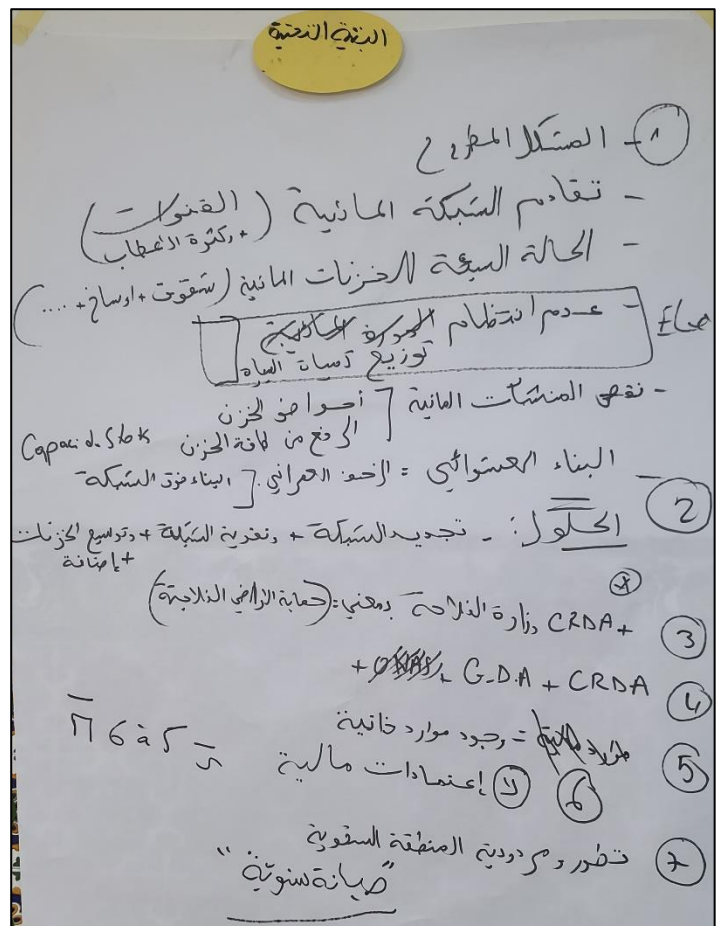 البنية التحتية
1 - المشكل المطروح
- تقادم الشبكة المائية (القنوات
+ وكثرة الأعطاب)
- الحالة السيئة للخزنات المائية (شقوق + اوساخ + ....)
- عدم انتظام
توزيع مياه
- نقص المنشآت المائية [ أحواض الخزن
الرفع من طاقة الخزن
- البناء العشوائي = الزحف العمراني [ البناء فوق الشبكة
2 الحلول: - تجديد الشبكة + وتغذية الشبكة + وتوسيع الخزنات
+ إضافة
3 CRDA + وزارة الفلاحة بمعنى = (حماية الأراضي الفلاحية)
4 CRDA + G.D.A +
5 - وجود موارد
6 لا إعتمادات مالية
7 تطور ومردودية المنطقة السقوية
"صيانة سنوية"